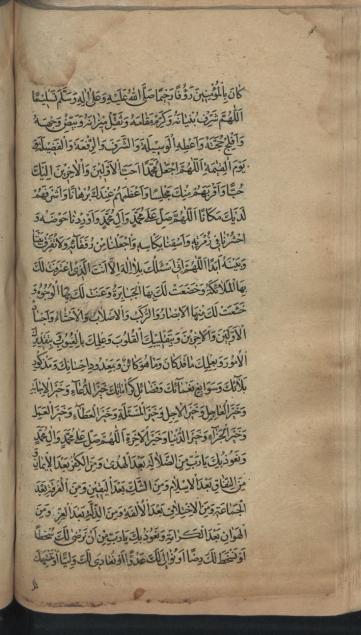 كان بالمؤمنين رؤفا رحيما صلى الله عليه وعلى اله وسلم تسليما
اللهم شرف بنيانه وكرم مقامه وثقل ميزانه وبيض وجهه
وافلج حجته واعطه الوسيلة والشرف والرفعة والفضيلة
يوم القيمة اللهم اجعل محمدا احب الاولين والاخرين اليك
حبا واقربهم منك مجلسا واعظمهم عندك برهانا واشرفهم
لديك مكانا اللهم صل على محمد وال محمد واوردنا حوضه و
احشرنا في زمرته واسقنا بكاسه واجعلنا من رفقائه ولا تفرق بيننا
وبينه ابدا اللهم اني اسئلك بلا اله الا انت
بها الملائكة وخضعت لك بها الجبابرة وعنت لك بها الوجوه و
خشعت لك منها الابصار والركب والاصلاب والاحشاء
الاولين والاخرين وبتقليبك القلوب وعلمك بالغيوب
الامور وبعلمك ما قد كان وما هو كائن وبمعدود احسانك ومذكور
بلائك وسوابغ نعمائك وفضائل كراماتك خير الدعاء وخير الاجابة
وخير العاجل وخير الاجل وخير المسئلة وخير العطاء وخير العمل
وخير الجزاء وخير الدنيا وخير الاخرة اللهم صل على محمد وال محمد
ونعوذ بك يا رب من الضلالة بعد الهدى ومن الكفر بعد الايمان و
من النفاق بعد الاسلام ومن الشك بعد اليقين ومن الفرقة بعد
الجماعة ومن الاختلاف بعد الالفة ومن الذلة بعد العز ومن
الهوان بعد الكرامة ونعوذ بك يا رب من ان نرضى لك سخطا
او نسخط لك رضا او نوالي لك عدوا او نعادي لك وليا